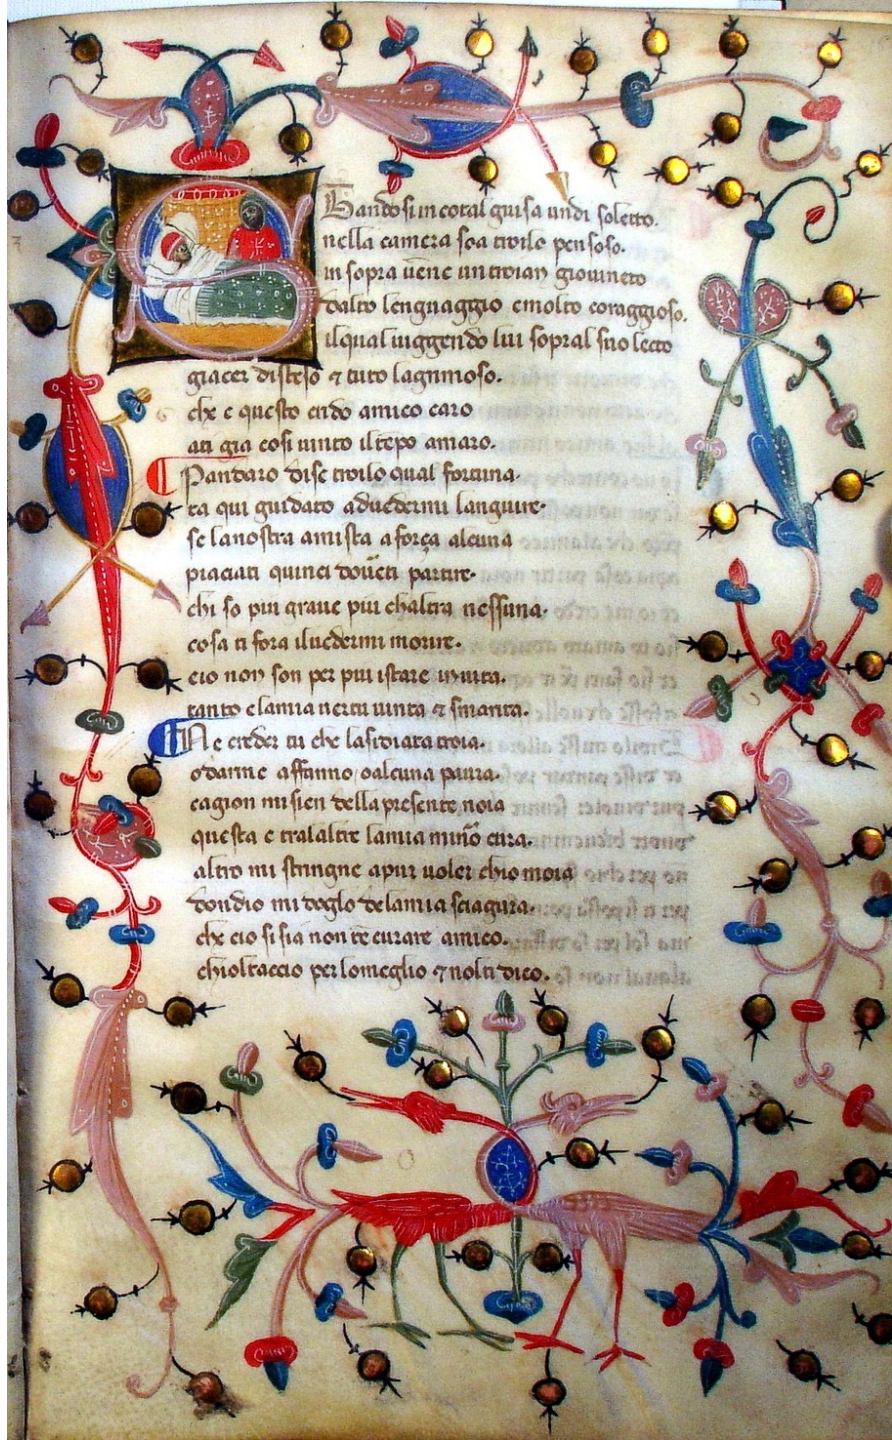 Standosi in cotal guisa un di soletto.
nella camera soa troilo pensoso.
in sopra uēne un troian giouineto
dalto lengnaggio e molto coraggioso.
il qual uiggendo lui sopral suo lecto
giacer disteso & tuto lagrimoso.
che e questo crido amico caro
ati gia cosi uinto il tēpo amaro.
Pandaro dise troilo qual fortuna.
ta qui guidato aduedermi languire.
se la nostra amista a força alcuna
piaciati quinci douerti partire.
chi so piu graue piu chaltra nessuna.
cosa ti fora iluedermi morire.
cio non son per piu istare in uita.
tanto e la mia uertu uinta & smarita.
Ne creder tu che lasidiata troia.
o darme affanno o alcuna paura.
cagion mi sien della presente noia
questa e tra laltre la mia mīno cura.
altro mi stringne a pur uoler chio moia
dondio mi doglo de la mia sciagura.
che cio si sia non te curare amico.
chiol taccio per lo meglio & nolti dico.